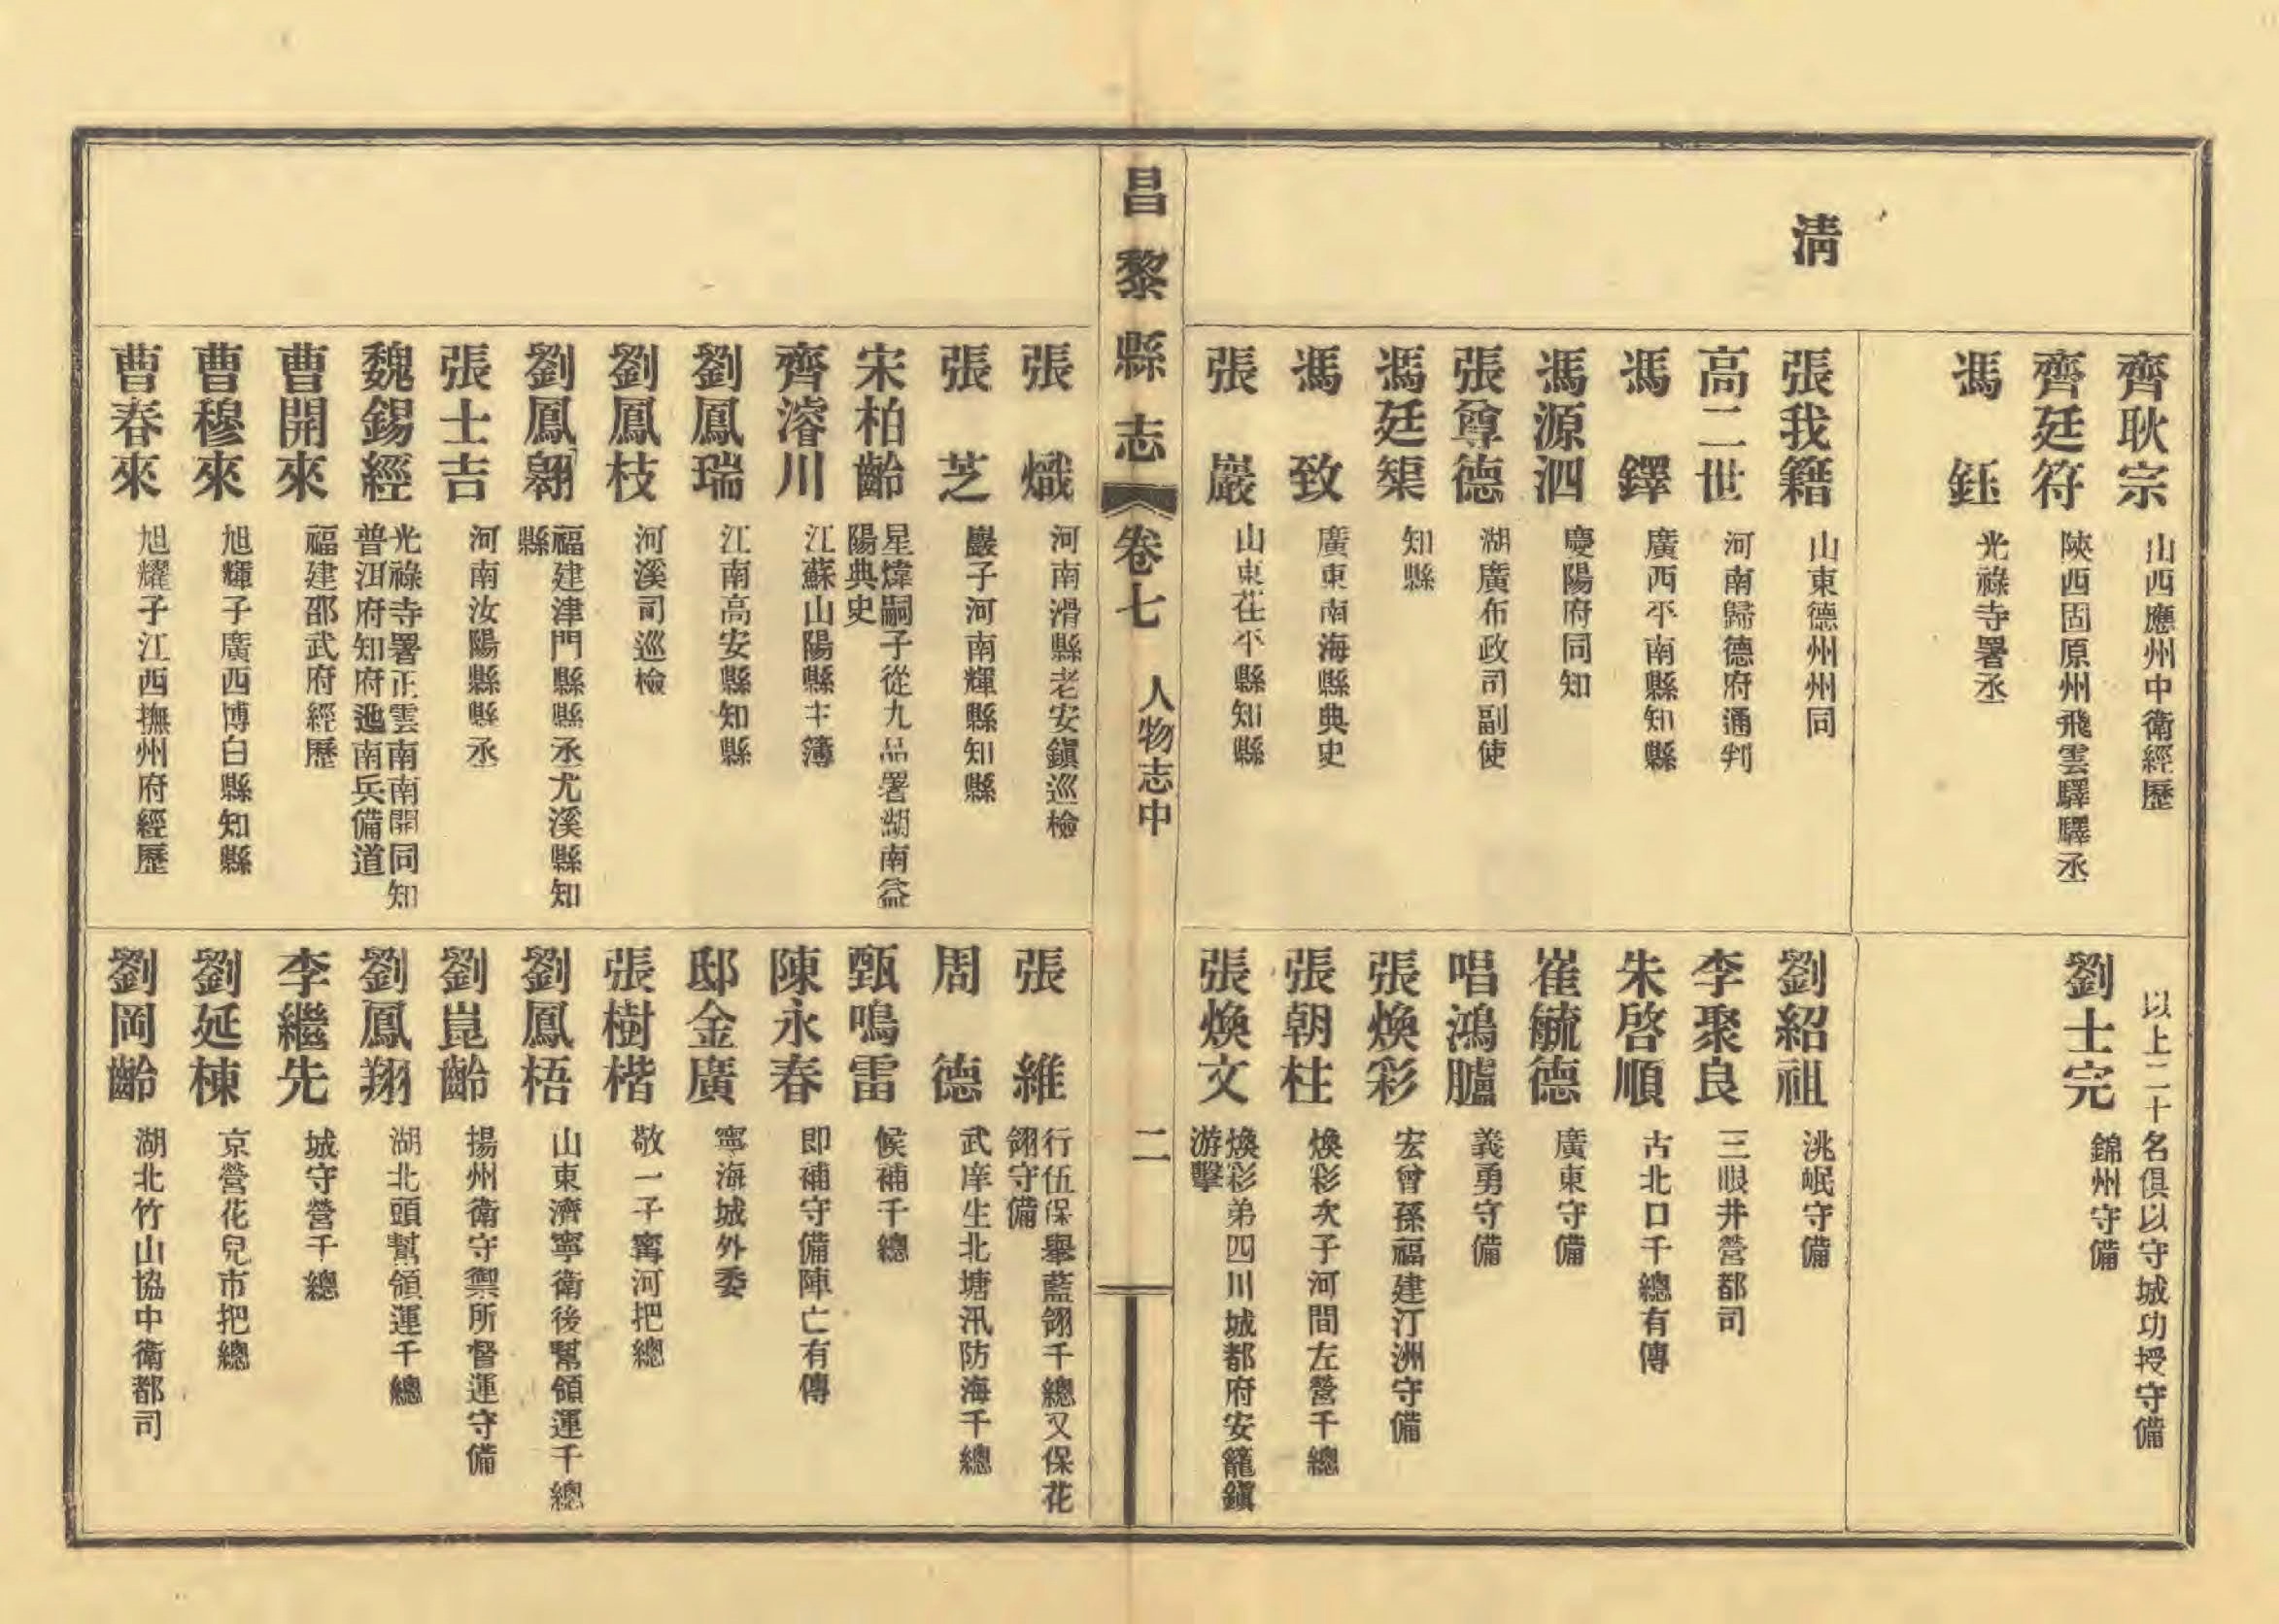 齊耿宗 山西應州中衛經歷
齊廷符 陝西固原州飛雲驛驛丞
馮鈺 光祿寺署丞
以上二十名俱以守城功授守備
劉士完 錦州守備
清
張我籍 山東德州州同
高二世 河南歸德府通判
馮鐸 廣西平南縣知縣
馮源泗 慶陽府同知
張尊德 湖廣布政司副使
馮廷榘 知縣
馮致 廣東南海縣典史
張巖 山東茌平縣知縣
劉紹祖 洮岷守備
李聚良 三眼井營都司
朱啓順 古北口千總有傳
崔毓德 廣東守備
唱鴻臚 義勇守備
張煥彩 宏曾孫福建汀洲守備
張朝柱 煥彩次子河間左營千總
張煥文 煥彩弟四川城都府安籠鎮
游擊
昌黎縣志 卷七 人物志中 二
張熾 河南滑縣老安鎮巡檢
張芝 巖子河南輝縣知縣
宋柏齡 星煒嗣子從九品署湖南益
陽典史
齊濬川 江蘇山陽縣主簿
劉鳳瑞 江南高安縣知縣
劉鳳枝 河溪司巡檢
劉鳳翱 福建津門縣縣丞尤溪縣知
縣
張士吉 河南汝陽縣縣丞
魏錫經 光祿寺署正雲南南開同知
普洱府知府迤南兵備道
曹開來 福建邵武府經歷
曹穆來 旭輝子廣西博白縣知縣
曹春來 旭耀子江西撫州府經歷
張維 行伍保舉藍翎千總又保花
翎守備
周德 武庠生北塘汛防海千總
甄鳴雷 候補千總
陳永春 即補守備陣亡有傳
邸金廣 寧海城外委
張樹楷 敬一子寗河把總
劉鳳梧 山東濟寧衛後幫領運千總
劉崑齡 揚州衛守禦所督運守備
劉鳳翔 湖北頭幫領運千總
李繼先 城守營千總
劉延棟 京營花兒市把總
劉岡齡 湖北竹山協中衛都司